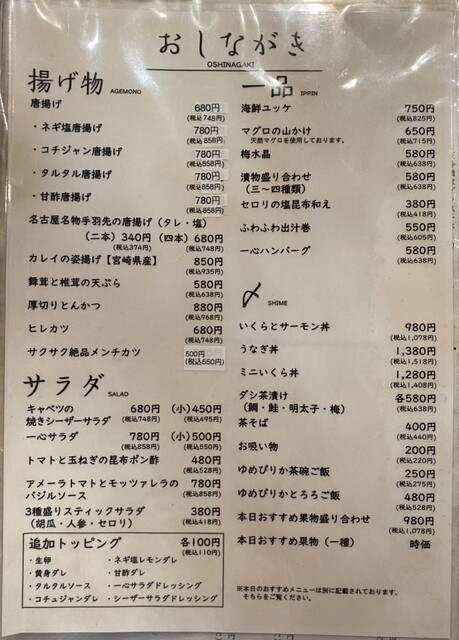 おしながき
OSHINAGAKI
揚げ物 AGEMONO
唐揚げ 680円
(税込748円)
・ネギ塩唐揚げ 780円
(税込858円)
・コチジャン唐揚げ 780円
(税込858円)
・タルタル唐揚げ 780円
(税込858円)
・甘酢唐揚げ 780円
(税込858円)
名古屋名物手羽先の唐揚げ（タレ・塩）
（二本）340円（四本）680円
(税込374円) (税込748円)
カレイの姿揚げ【宮崎県産】 850円
(税込935円)
舞茸と椎茸の天ぷら 580円
(税込638円)
厚切りとんかつ 880円
(税込968円)
ヒレカツ 680円
(税込748円)
サクサク絶品メンチカツ 500円
(税込550円)
サラダ SALAD
キャベツの 680円 (小)450円
焼きシーザーサラダ (税込748円) (税込495円)
一心サラダ 780円 (小)500円
(税込858円) (税込550円)
トマトと玉ねぎの昆布ポン酢 480円
(税込528円)
アメーラトマトとモッツァレラの 780円
バジルソース (税込858円)
3種盛りスティックサラダ 380円
（胡瓜・人参・セロリ） (税込418円)
追加トッピング 各100円
(税込110円)
・生卵 ・ネギ塩レモンダレ
・黄身ダレ ・甘酢ダレ
・タルタルソース ・一心サラダドレッシング
・コチュジャンダレ ・シーザーサラダドレッシング
一品 IPPIN
海鮮ユッケ 750円
(税込825円)
マグロの山かけ 650円
天然マグロを使用しております。 (税込715円)
梅水晶 580円
(税込638円)
漬物盛り合わせ 580円
（三〜四種類） (税込638円)
セロリの塩昆布和え 380円
(税込418円)
ふわふわ出汁巻 550円
(税込605円)
一心ハンバーグ 580円
(税込638円)
〆 SHIME
いくらとサーモン丼 980円
(税込1,078円)
うなぎ丼 1,380円
(税込1,518円)
ミニいくら丼 1,280円
(税込1,408円)
ダシ茶漬け 各580円
（鯛・鮭・明太子・梅） (税込638円)
茶そば 400円
(税込440円)
お吸い物 200円
(税込220円)
ゆめぴりか茶碗ご飯 250円
(税込275円)
ゆめぴりかとろろご飯 480円
(税込528円)
本日おすすめ果物盛り合わせ 980円
(税込1,078円)
本日おすすめ果物（一種） 時価
※本日のおすすめメニューは別に記載されております。
そちらをご覧ください。